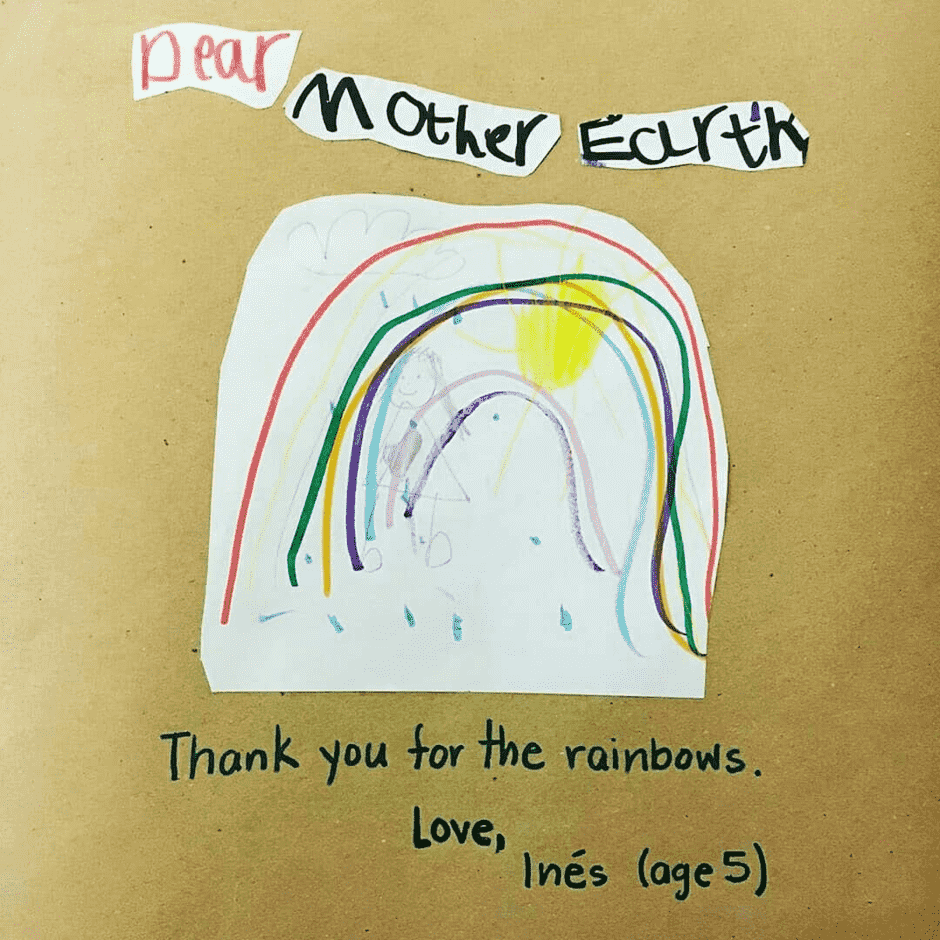 Dear
Mother Earth
Thank you for the rainbows.
Love,
Inés (age 5)